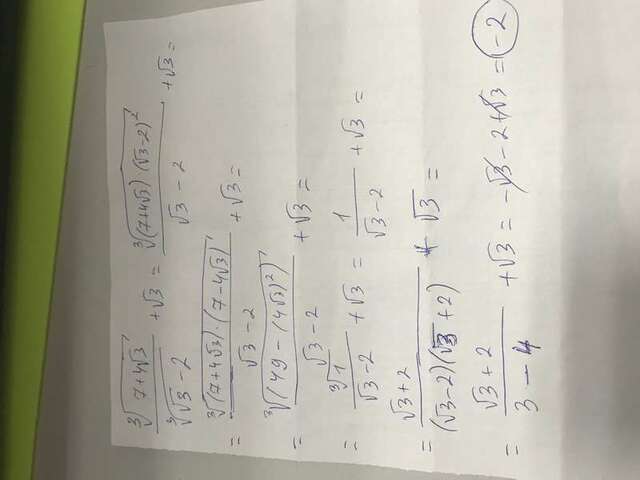 ∛(7+4√3) / ∛(√3-2) + √3 = ∛((7+4√3)(√3-2)²) / (√3-2) + √3 =
= ∛((7+4√3)·(7-4√3)) / (√3-2) + √3 =
= ∛(49-(4√3)²) / (√3-2) + √3 =
= ∛1 / (√3-2) + √3 = 1 / (√3-2) + √3 =
= (√3+2) / ((√3-2)(√3+2)) + √3 =
= (√3+2) / (3-4) + √3 = -√3-2+√3 = -2